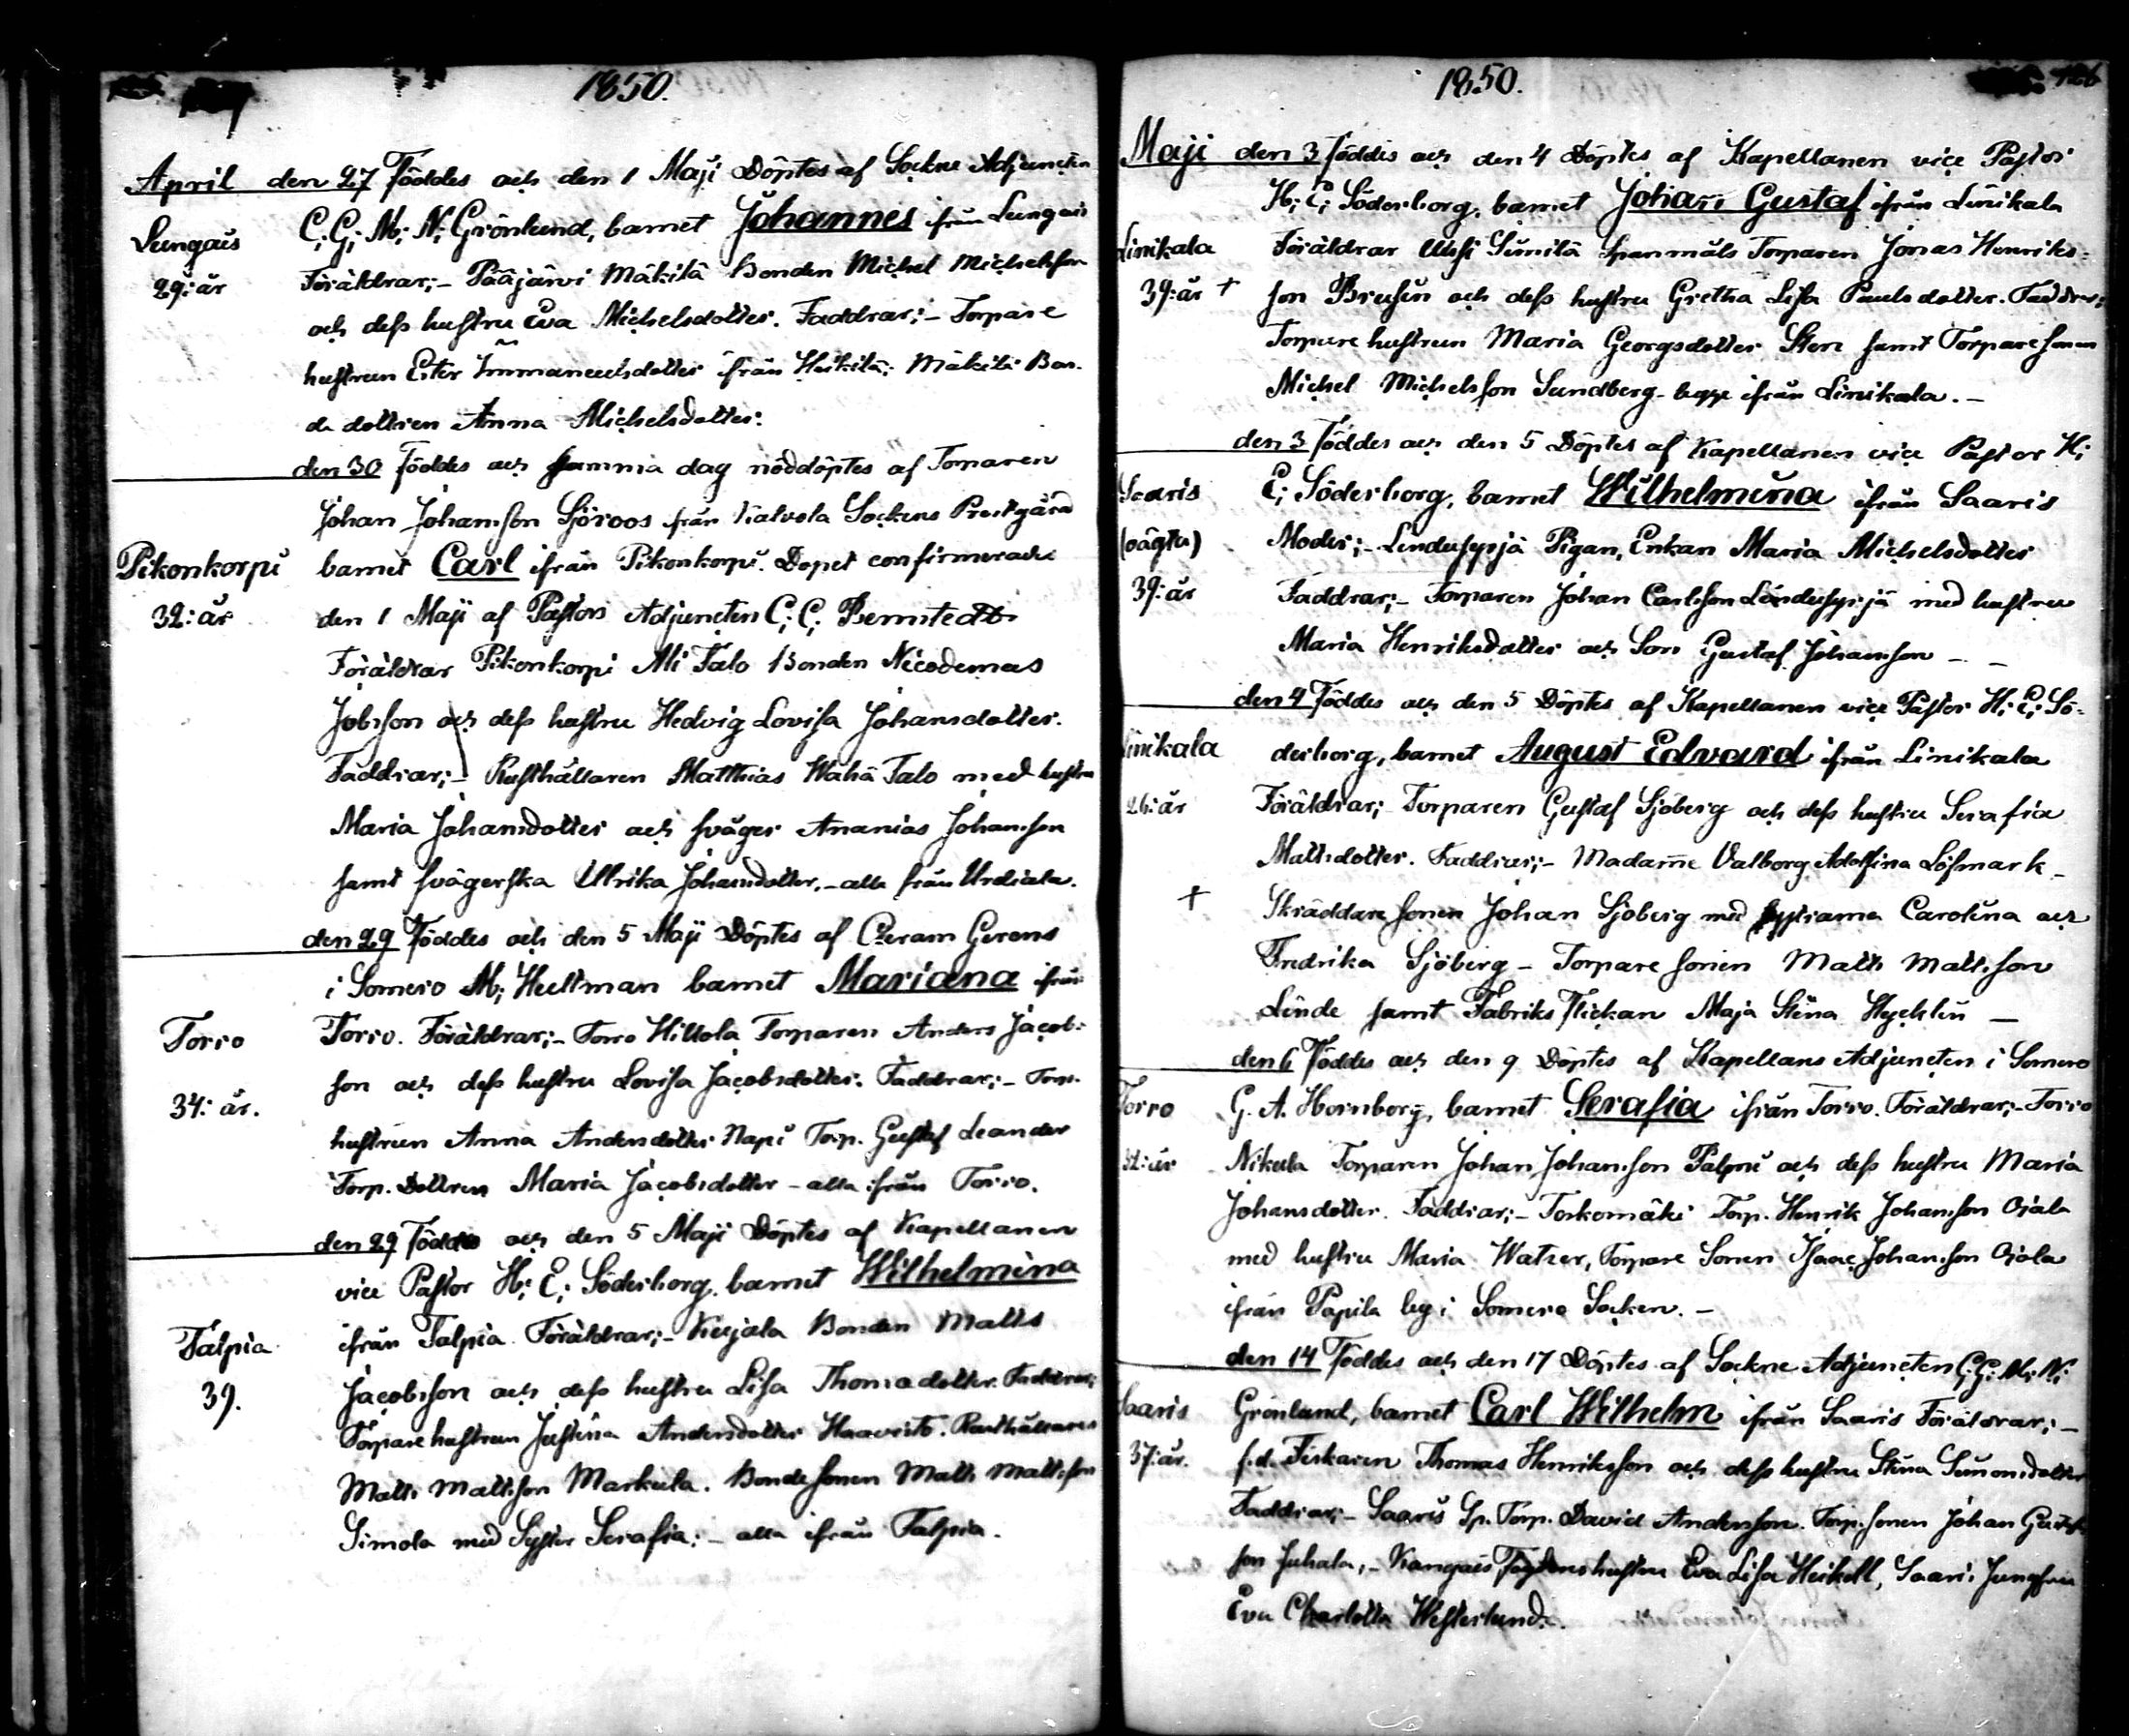 1850.
April den 27 Föddes och den 1 Maji Döptes af Sockne Adjuncten
Lungais C; G; M; N; Grönlund, barnet Johannes ifrån Lungais
29: år Föräldrar;- Pääjärvi Mäkilä Bonden Michel Michelsson
och dess hustru Eva Michelsdotter. Faddrar;- Torpare
hustrun Ester Immanuelsdotter ifrån Heikilä; Mäkilä Bon-
de dottren Anna Michelsdotter.
den 30 Föddes och samma dag nöddöptes af Torparen
Johan Johansson Sjöroos från Kalvola Sockens Prestgård
Pikonkorpi barnet Carl ifrån Pikonkorpi. Dopet confirmerades
32: år den 1 Maji af Pastors Adjuncten C; C; Bernstedt
Föräldrar Pikonkorpi Ali Talo Bonden Nicodemus
Jobsson och dess hustru Hedvig Lovisa Johansdotter.
Faddrar;- Rusthållaren Matthias Wähä Talo med hustru
Maria Johansdotter och svåger Ananias Johansson
samt svägerska Ullrika Johansdotter,- alla från Urdiala.
den 29 Föddes och den 5 Maji Döptes af Curam Gerens
i Somero M; Hultman barnet Mariana ifrån
Torro Torro. Föräldrar;- Torro Hillola Torparen Anders Jacob-
34: år. son och dess hustru Lovisa Jacobsdotter. Faddrar;- Torp.
hustrun Anna Andersdotter Napi Torp. Gustaf Leander
Torp. Dottren Maria Jacobsdotter - alla ifrån Torro.
den 29 Föddes och den 5 Maji Döptes af Kapellanen
vice Pastor H; E; Söderborg, barnet Wilhelmina
Talpia ifrån Talpia. Föräldrar;- Kujala Bonden Matts
39. Jacobsson och dess hustru Lisa Thomasdotter. Faddrar;
Torpare hustrun Justina Andersdotter Haavisto. Rusthållaren
Matts Mattsson Markula. Bonde sonen Matts Mattsson
Simola med Syster Serafia;- alla ifrån Talpia.
1850. 126
Maji den 3 föddes och den 4 Döptes af Kapellanen vice Pastor
H; E; Söderborg, barnet Johan Gustaf ifrån Linikala
Linikala Föräldrar Uusi Similä Spanmåls Torparen Jonas Henriks-
39: år † son Brusin och dess hustru Gretha Lisa Paulsdotter. Faddrar;
Torpare hustrun Maria Georgsdotter Sten samt Torpare sonen
Michel Michelsson Sundberg - begge ifrån Linikala. -
den 3 Föddes och den 5 Döptes af Kapellanen vice Pastor H;
Saaris E; Söderborg, barnet Wilhelmina ifrån Saaris
(oägta) Moder;- Lindusyrjä Pigan, Enkan Maria Michelsdotter
39: år Faddrar;- Torparen Johan Carlsson Lindusyrjä med hustru
Maria Henriksdotter och Son Gustaf Johansson - -
den 4 Föddes och den 5 Döptes af Kapellanen vice Pastor H; E; Sö-
Linikala derborg, barnet August Edvard ifrån Linikala
26: år Föräldrar;- Torparen Gustaf Sjöberg och dess hustru Serafia
Mattsdotter. Faddrar;- Madame Valborg Adolfina Löfmark -
† Skräddare sonen Johan Sjöberg med systrarna Carolina och
Fredrika Sjöberg - Torpare sonen Matts Mattsson
Linde samt Fabriks Flickan Maja Stina Hychlin -
den 6 Föddes och den 9 Döptes af Kapellans Adjuncten i Somero
Torro G. A. Hornborg, barnet Serafia ifrån Torro. Föräldrar;- Torro
32: år Nikula Torparen Johan Johansson Palpni och dess hustru Maria
Johansdotter. Faddrar;- Torkomäki Torp. Henrik Johansson Ojala
med hustru Maria Watzer, Torpare Sonen Isaac Johansson Ojala
ifrån Papila by i Somero Socken. -
den 14 Föddes och den 17 Döptes af Sockne Adjuncten C; G; M; N;
Saaris Grönlund, barnet Carl Wilhelm ifrån Saaris Föräldrar;-
37: år. f.d. Fiskaren Thomas Henriksson och dess hustru Stina Simonsdotter
Faddrar;- Saaris Sp. Torp. David Andersson. Torp. sonen Johan Gustaf-
son Juhala,- Kangais hustru Eva Lisa Heikell, Saaris Jungfru
Eva Charlotta Westerlund.